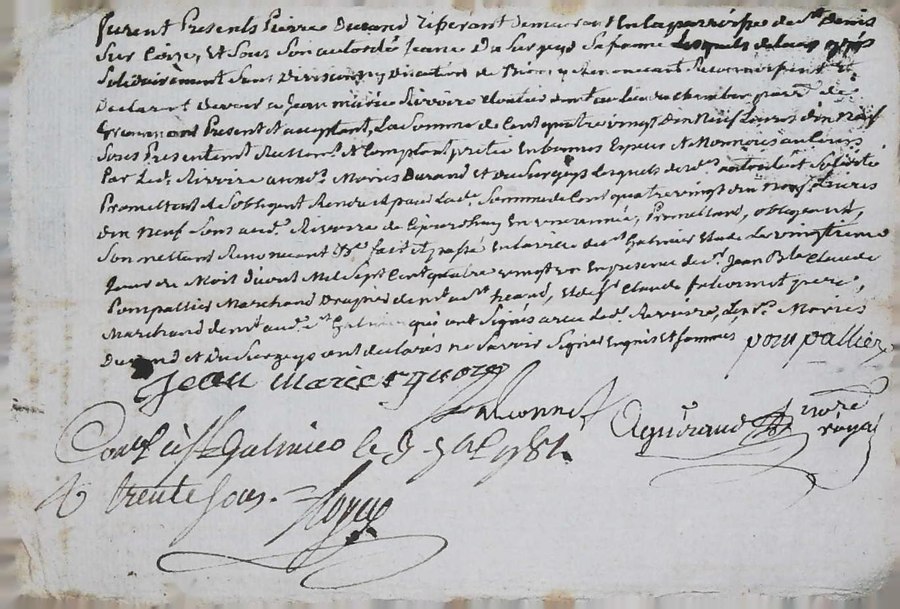 furent Presents Pierre Durand Tisserant Demeurant En la parroisse de St Denis
Sur Coize, Et Sous Son authorité Jeanne Du Sergeys Sa femme Lesquels de leur grés
Solidairement Sans Division ny Discution de Biens y renoncant Reconnoissent Et
Declarent devoir a Jean marie Rivoire Cloutier dmt au Lieu de chambre parr. de
Present et acceptant, La Somme de Cent quatre vingt dix Neuf Livres dix Neuf
Sous Presentement Et Comptant pretée En bonnes Especes Et Monnoies au Cours
Par Led. Rivoire auxd. Mariés Durand et du Sergeys Lesquels de lad. authorité et Solidité
Promettent et S'obligent Rendre et payer lad. Somme de Cent quatre vingt dix Neuf Livres
dix Neuf Sous aud. Rivoire de Ce jourdhuy En une année, Promettant, obligeant,
Soumettant Renoncant &a fait et passé En la ville de St Galmier Etude Le vingtieme
Jour de Mois d'aout Mil Sept Cent quatre vingt un En presence de Sr Jean Bte Claude
Pompallier Marchand Drapier dmt a St heand, Et de Sr Claude falconnet pere,
Marchand dmt aud. St Galmier qui ont Signés avec led. Rivoire, Et Non Lesd. Mariés
Durand et Du Sergeys ont declarés ne Savoir Signer Enquis Et Sommés pompallier
Jean marie rivoire
falconnet
Aguiraud nore
royal
Conlé à St Galmier le 3 7bre 1781.
R trente Sous.